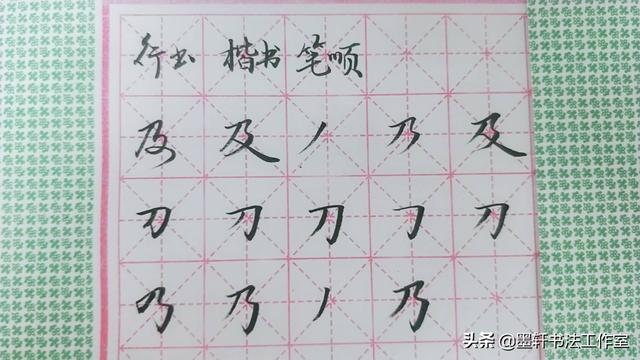 行书 楷书 笔顺
及 及 丿 乃 及
刀 刀 刀 ㇆ 刀
乃 乃 丿 乃
头条 @墨轩书法工作室